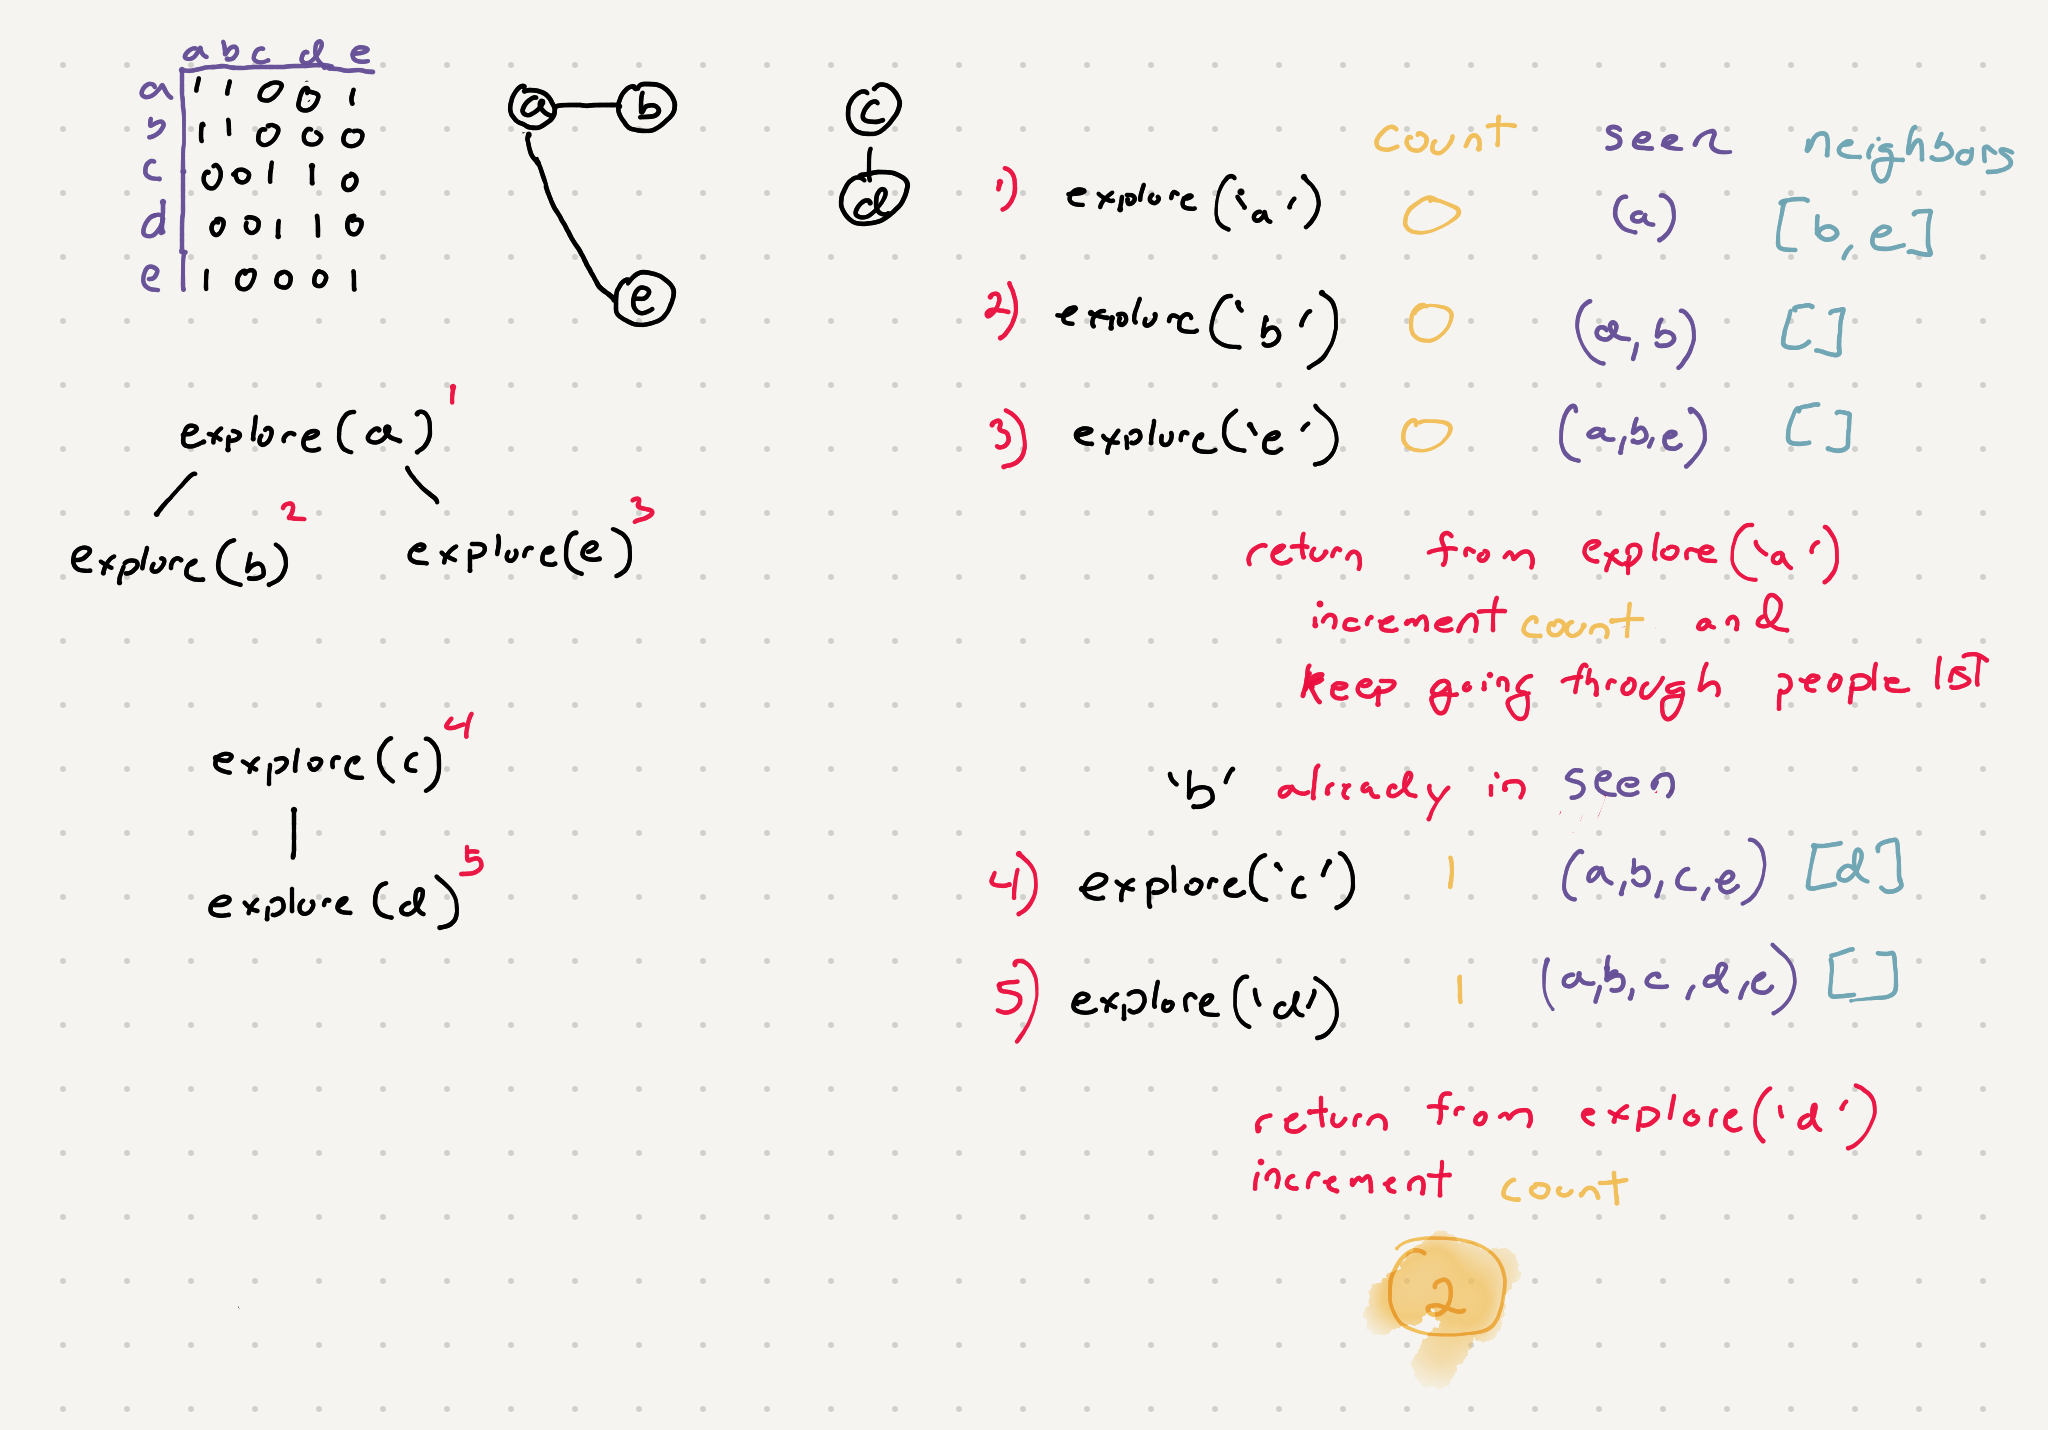 a b c d e
a 1 1 0 0 1
b 1 1 0 0 0
c 0 0 1 1 0
d 0 0 1 1 0
e 1 0 0 0 1
a b
e
c
d
explore(a) 1
explore(b) 2 explore(e) 3
explore(c) 4
explore(d) 5
count seen neighbors
1) explore('a') 0 (a) [b, e]
2) explore('b') 0 (a, b) []
3) explore('e') 0 (a,b,e) []
return from explore('a')
increment count and
keep going through people list
'b' already in seen
4) explore('c') 1 (a,b,c,e) [d]
5) explore('d') 1 (a,b,c,d,e) []
return from explore('d')
increment count
2